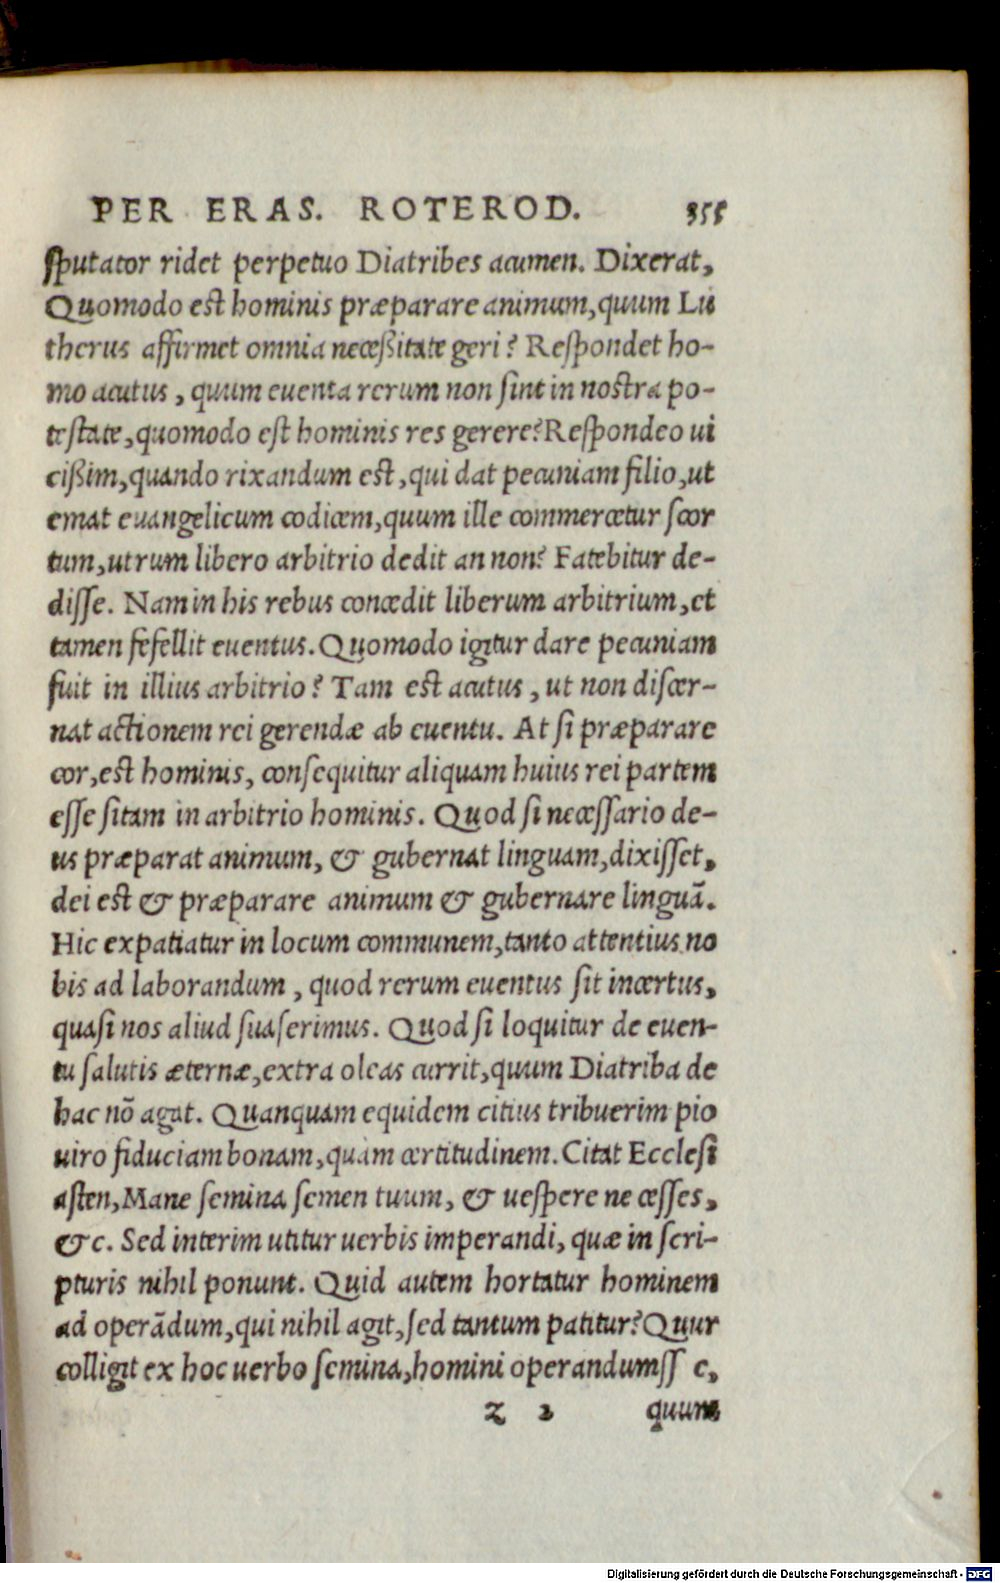 PER ERAS. ROTEROD. 355
sputator ridet perpetuo Diatribes acumen. Dixerat,
Quomodo est hominis præparare animum, quum Lu
therus affirmet omnia neceßitate geri? Respondet ho-
mo acutus, quum euenta rerum non sint in nostra po-
testate, quomodo est hominis res gerere? Respondeo ui
cißim, quando rixandum est, qui dat pecuniam filio, ut
emat euangelicum codicem, quum ille commercetur scor
tum, utrum libero arbitrio dedit an non? Fatebitur de-
disse. Nam in his rebus concedit liberum arbitrium, et
tamen fefellit euentus. Quomodo igitur dare pecuniam
fuit in illius arbitrio? Tam est acutus, ut non discer-
nat actionem rei gerendæ ab euentu. At si præparare
cor, est hominis, consequitur aliquam huius rei partem
esse sitam in arbitrio hominis. Quod si necessario de-
us præparat animum, & gubernat linguam, dixisset,
dei est & præparare animum & gubernare linguā.
Hic expatiatur in locum communem, tanto attentius no
bis ad laborandum, quod rerum euentus sit incertus,
quasi nos aliud suaserimus. Quod si loquitur de euen-
tu salutis æternæ, extra oleas currit, quum Diatriba de
hac nō agat. Quanquam equidem citius tribuerim pio
uiro fiduciam bonam, quàm certitudinem. Citat Ecclesi
asten, Mane semina semen tuum, & uespere ne cesses,
&c. Sed interim utitur uerbis imperandi, quæ in scri-
pturis nihil ponunt. Quid autem hortatur hominem
ad operādum, qui nihil agit, sed tantum patitur? Quur
colligit ex hoc uerbo semina, homini operandumss e,
z 2 quum
Digitalisierung gefördert durch die Deutsche Forschungsgemeinschaft - DFG